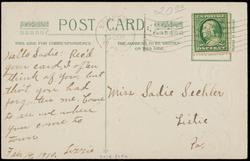 POST CARD
THIS SIDE FOR CORRESPONDENCE
THE ADDRESS TO BE WRITTEN ON THIS SIDE
Hello Sadie: Rec'd
your card, I often
think of you, but
that you had
forgotten me. Come
to see me when
you come to
town
Feb, 1910. Lizzie
Miss Sadie Sechler
Pa.